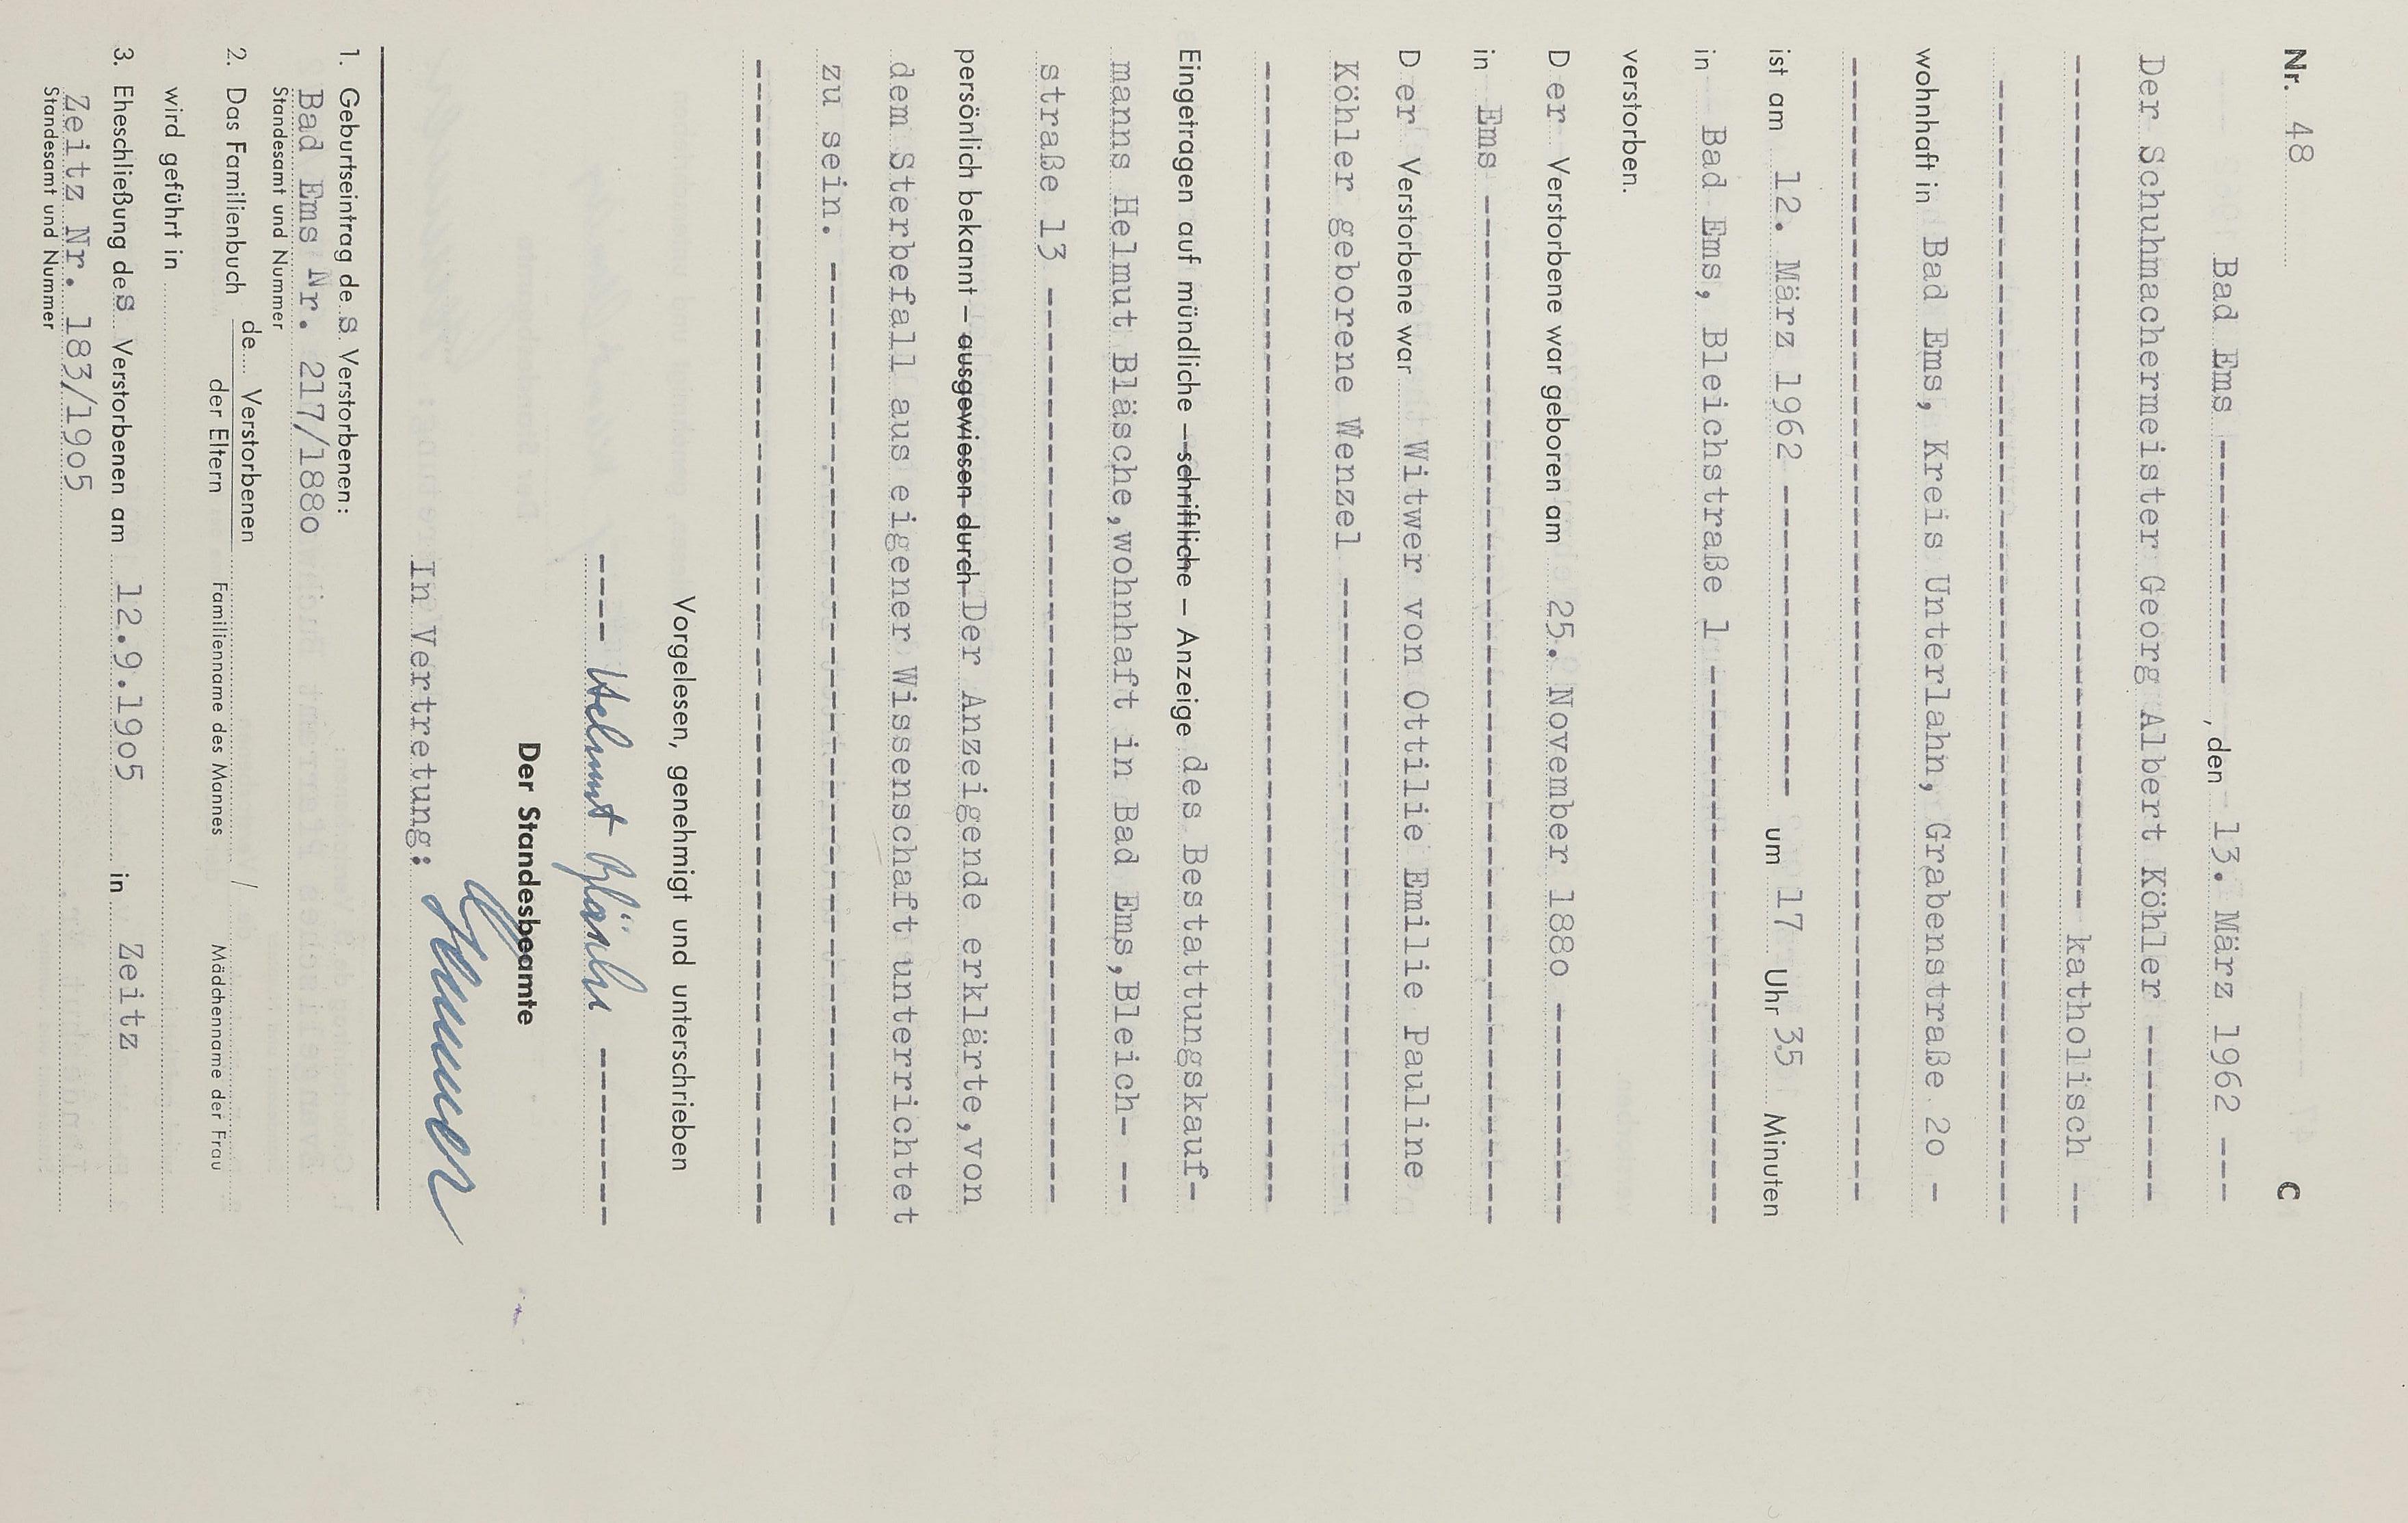 Nr. 48 C
Bad Ems ------------, den 13. März 1962 ---
Der Schuhmachermeister Georg Albert Köhler -------
---------------------------------- katholisch --
----------------------------------------------
wohnhaft in Bad Ems, Kreis Unterlahn, Grabenstraße 2o -
----------------------------------------------
ist am 12. März 1962 -------------- um 17 Uhr 35 Minuten
in Bad Ems, Bleichstraße 1 ------------------------
verstorben.
D er Verstorbene war geboren am 25. November 188o ---------
in Ems ------------------------------------------
D er Verstorbene war Witwer von Ottilie Emilie Pauline
Köhler geborene Wenzel --------------------------
----------------------------------------------
Eingetragen auf mündliche – schriftliche – Anzeige des Bestattungskauf-
manns Helmut Bläsche,wohnhaft in Bad Ems,Bleich- --
straße 13 -------------------------------------
persönlich bekannt – ausgewiesen durch Der Anzeigende erklärte,von
dem Sterbefall aus eigener Wissenschaft unterrichtet
zu sein. ---------------------------------------
----------------------------------------------
Vorgelesen, genehmigt und unterschrieben
---- Helmut Bläsche -------
Der Standesbeamte
In Vertretung:
1. Geburtseintrag de s Verstorbenen:
Bad Ems Nr. 217/188o
Standesamt und Nummer
2. Das Familienbuch de.... Verstorbenen
der Eltern Familienname des Mannes / Mädchenname der Frau
wird geführt in
3. Eheschließung des Verstorbenen am 12.9.19o5 in Zeitz
Zeitz Nr. 183/19o5
Standesamt und Nummer